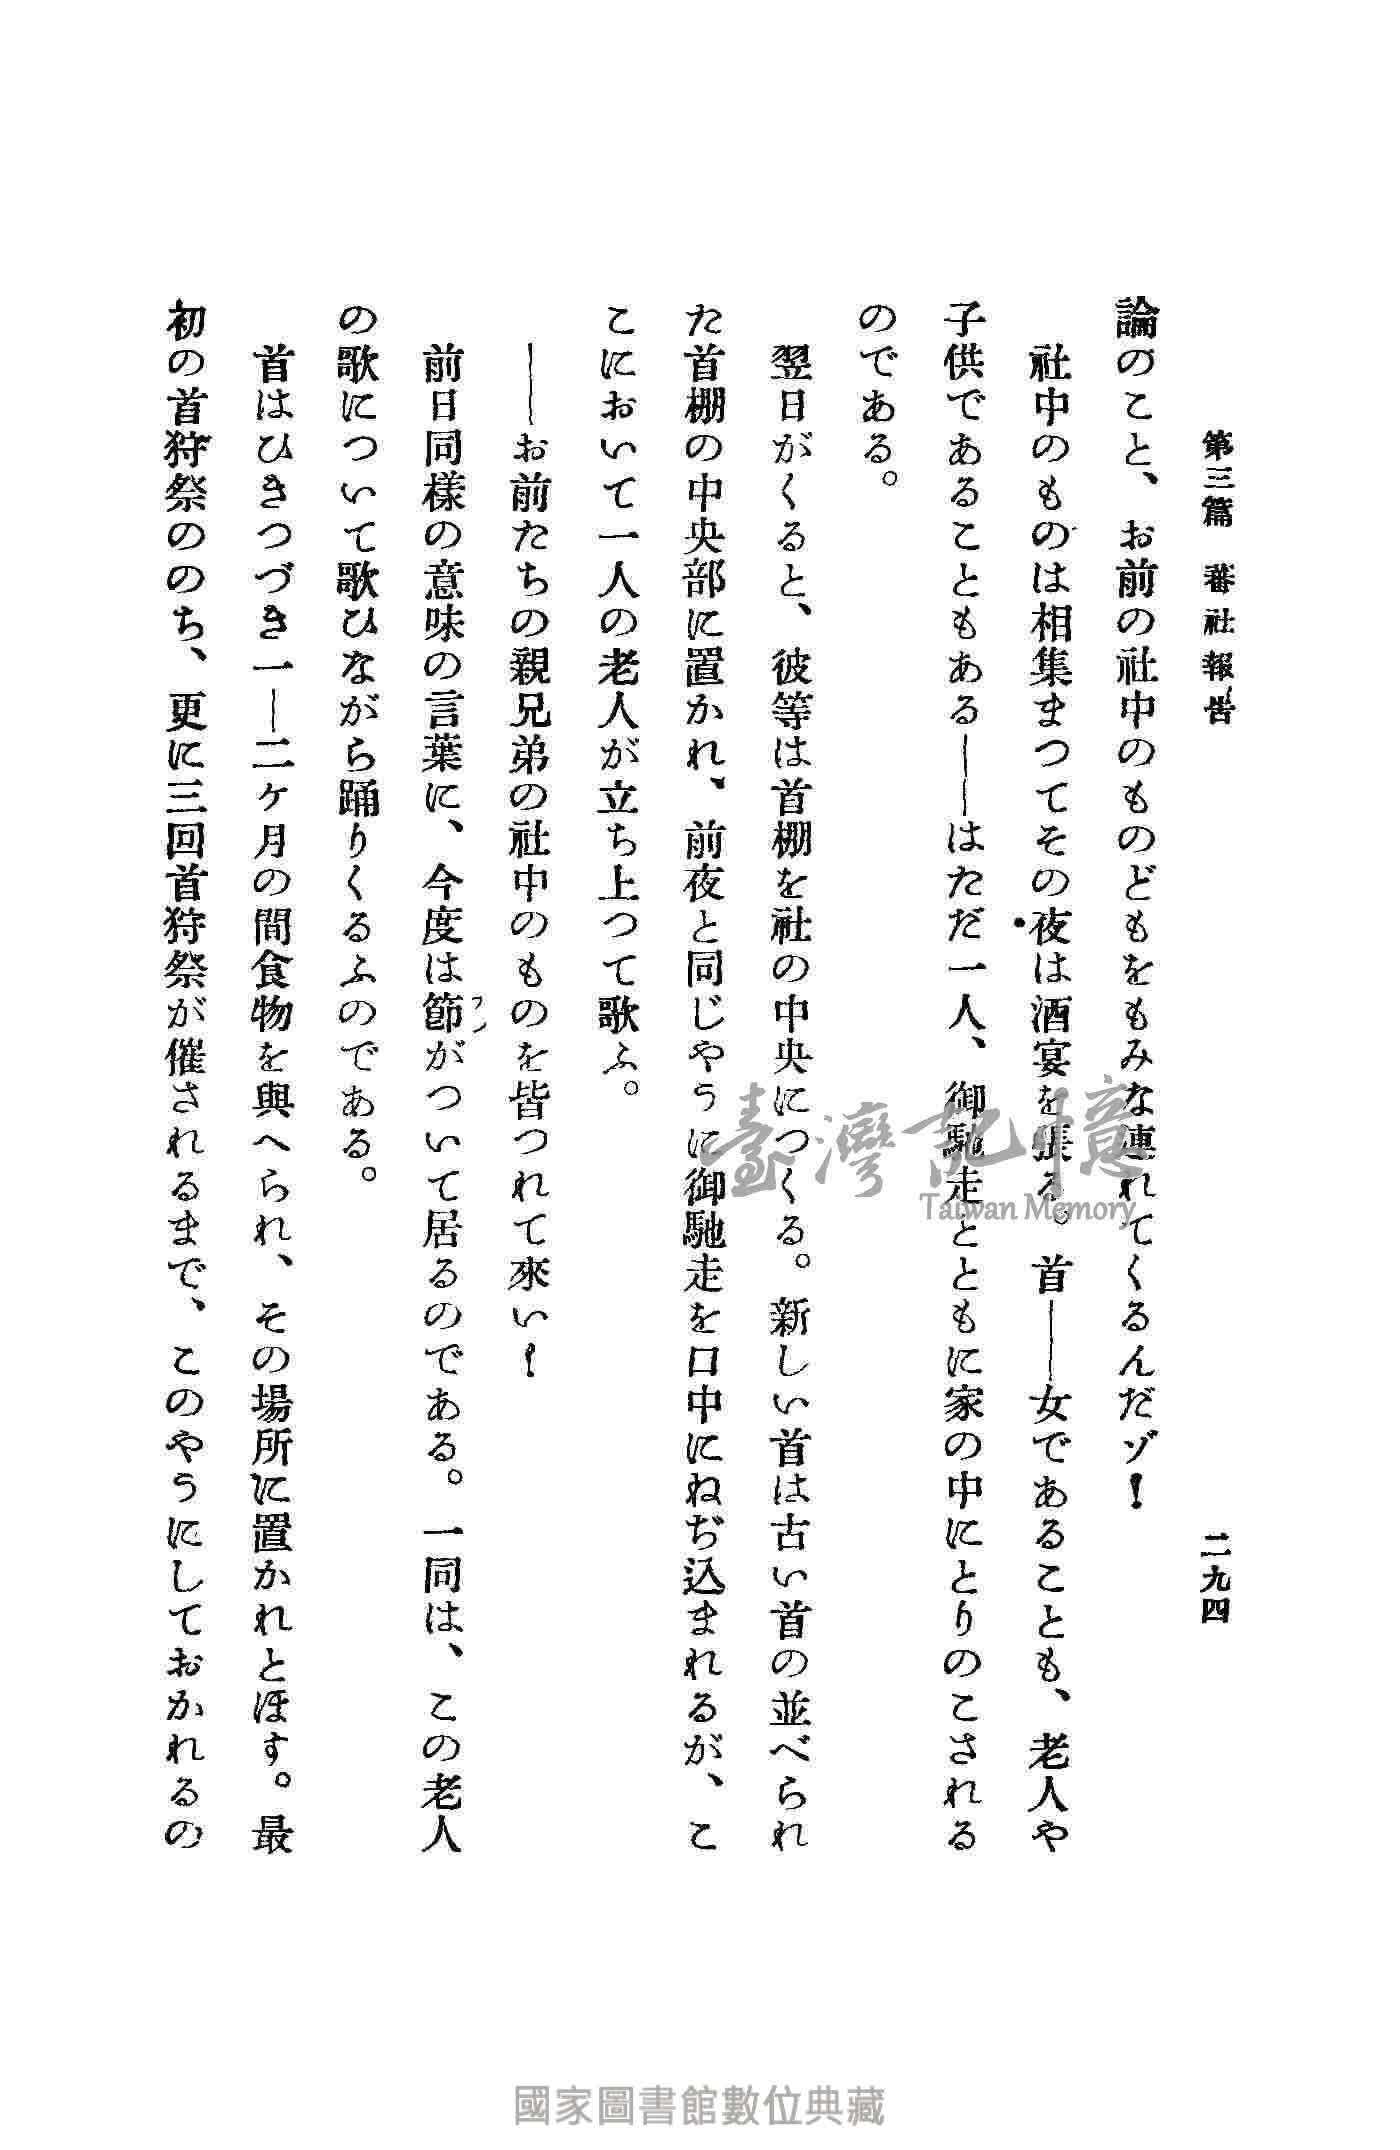 第三篇 蕃社報告 二九四
論のこと、お前の社中のものどもをもみな連れてくるんだゾ！
社中のものは相集まつてその夜は酒宴を張る。首——女であることも、老人や
子供であることもある——はただ一人、御馳走とともに家の中にとりのこされる
のである。
翌日がくると、彼等は首棚を社の中央につくる。新しい首は古い首の並べられ
た首棚の中央部に置かれ、前夜と同じやうに御馳走を口中にねぢ込まれるが、こ
こにおいて一人の老人が立ち上つて歌ふ。
——お前たちの親兄弟の社中のものを皆つれて來い！
前日同樣の意味の言葉に、今度は節がついて居るのである。一同は、この老人
フシ
の歌について歌ひながら踊りくるふのである。
首はひきつづき一—二ヶ月の間食物を與へられ、その場所に置かれとほす。最
初の首狩祭ののち、更に三回首狩祭が催されるまで、このやうにしておかれるの
臺灣記憶
Taiwan Memory
國家圖書館數位典藏